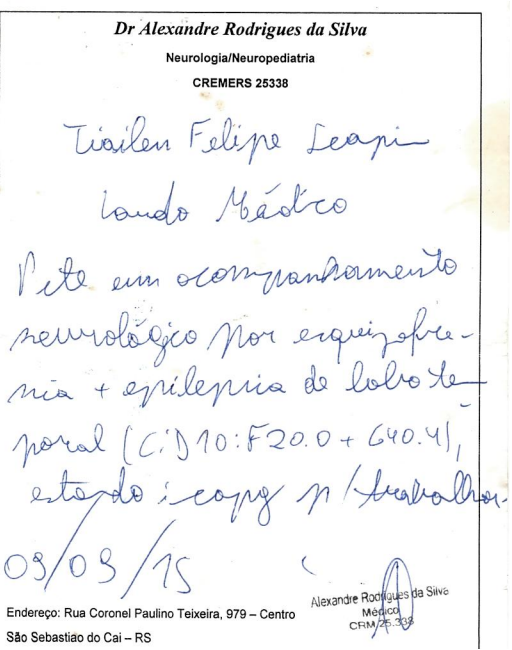 Dr Alexandre Rodrigues da Silva
Neurologia/Neuropediatria
CREMERS 25338
Felipe
Laudo Médico
Pcte em acompanhamento
neurológico por esquizofre-
nia + epilepsia de lobo te-
poral (CID10: F20.0 + G40.4),
estando icapaz p/ trabalhar.
09/09/15
Alexandre Rodrigues da Silva
Médico
CRM 25.338
Endereço: Rua Coronel Paulino Teixeira, 979 – Centro
São Sebastiao do Cai – RS